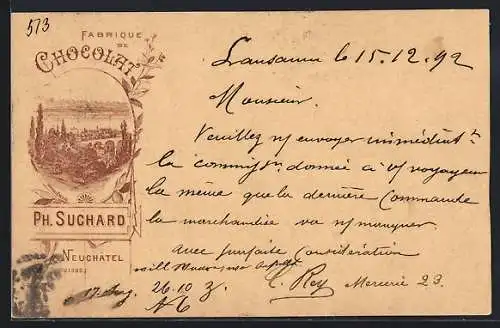 513
FABRIQUE
DE
CHOCOLAT
PH. SUCHARD
NEUCHÂTEL
(SUISSE)
Lausanne le 15.12.92
Monsieur.
Veuillez n/ envoyer immédiatt
la commissn. donnée à v/ voyageur
la même que la dernière commande
la marchandise va n/ manquer.
Avec parfaite considération
C. Rey Mercerie 23.
26.10